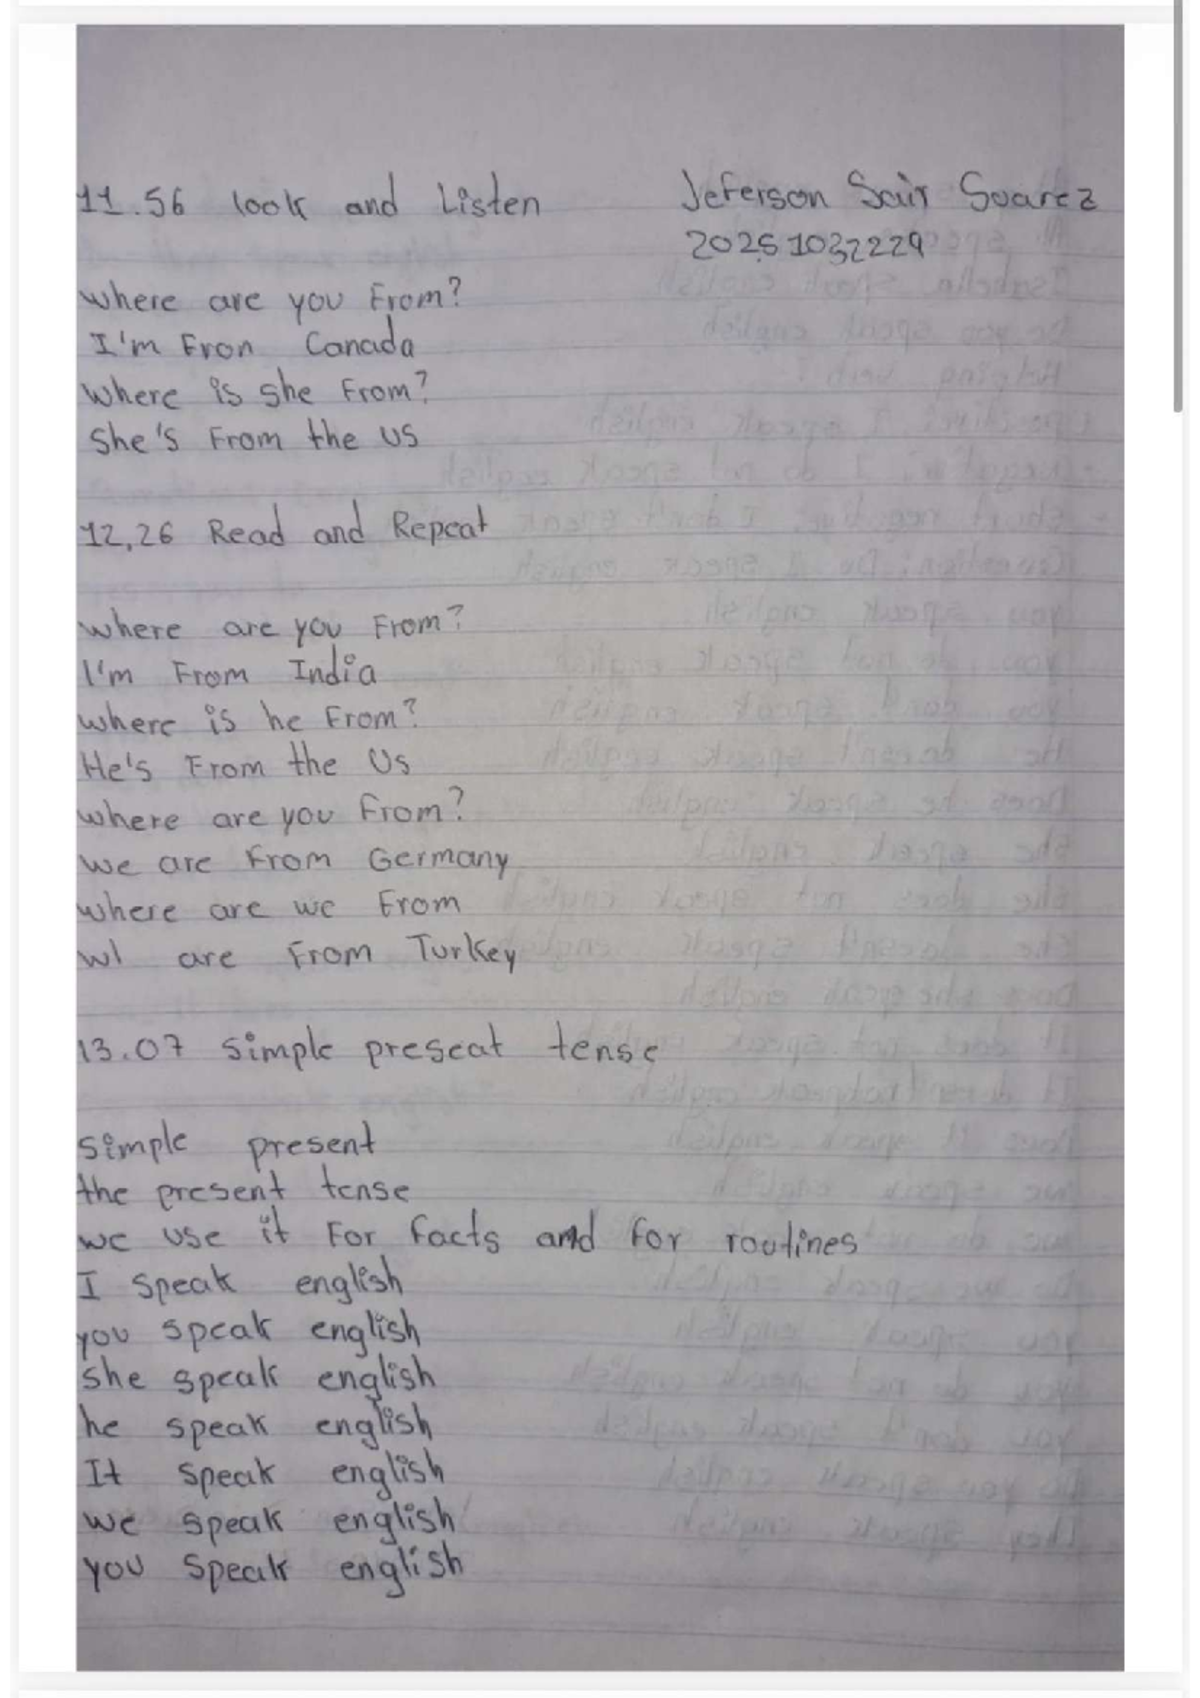 11.56 look and Listen
Jeferson Sair Suarez
20251032229
where are you From?
I'm Fron Canada
Where is she From?
She's From the US
12,26 Read and Repeat
where are you From?
I'm From India
where is he From?
He's From the Us
where are you From?
we are From Germany
where are we From
wl are From Turkey
13.07 simple preseat tense
simple present
the present tense
we use it For facts and for routines
I speak english
you speak english
she speak english
he speak english
It speak english
we speak english
you speak english